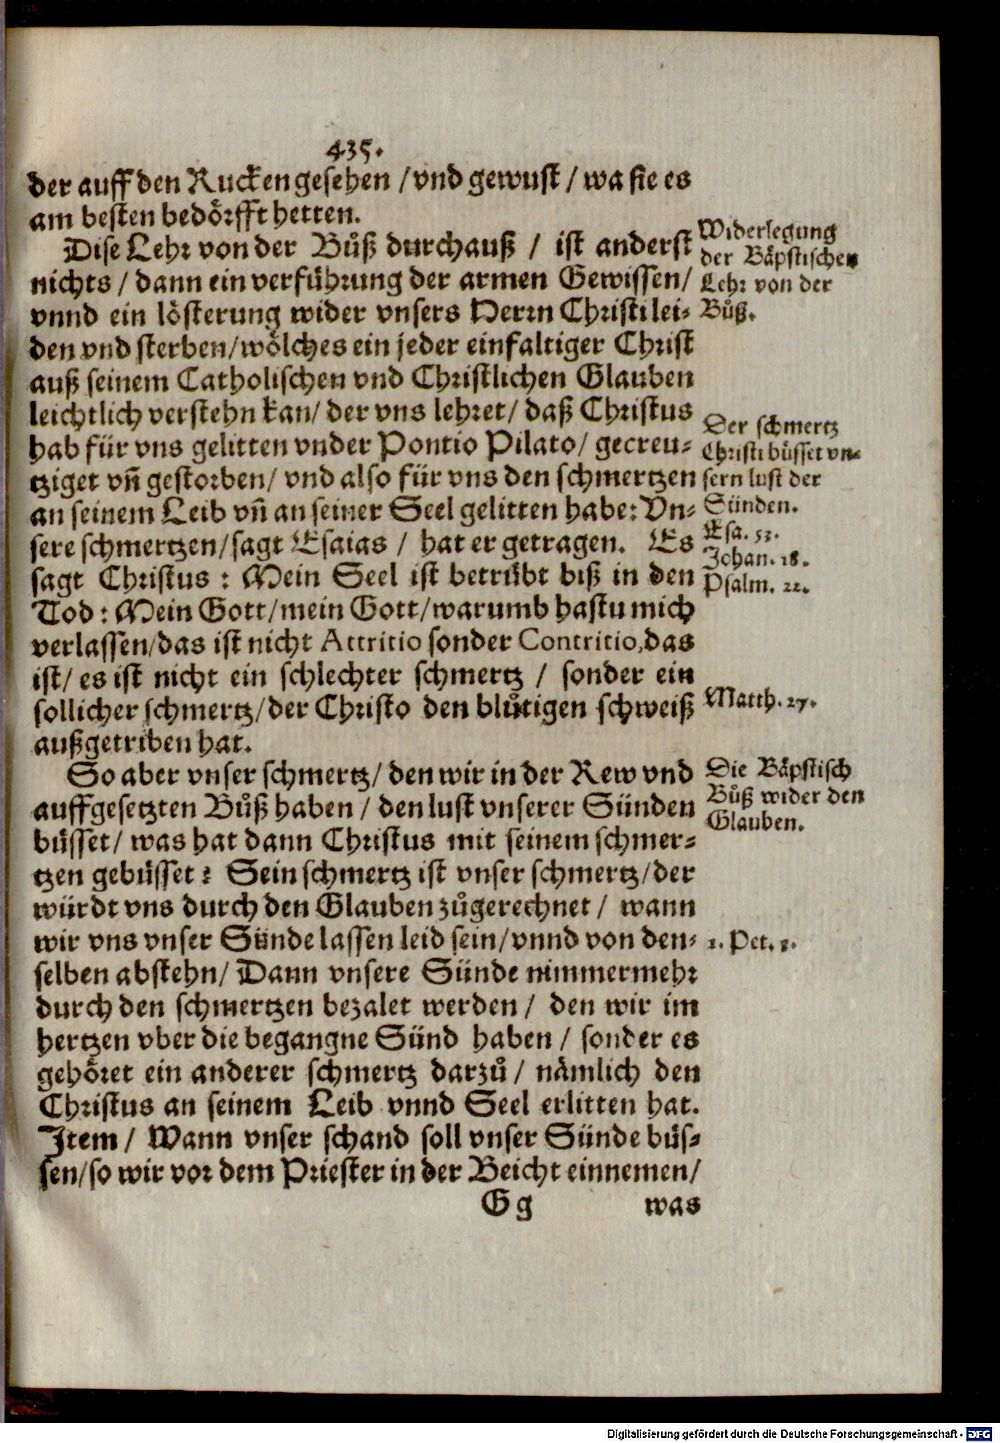 435.
der auff den Rucken gesehen / vnd gewust / wa sie es
am besten bedörfft hetten.
Dise Lehr von der Bůß durchauß / ist anderst
nichts / dann ein verführung der armen Gewissen/
vnnd ein lösterung wider vnsers Herrn Christi lei-
den vnd sterben/wölches ein jeder einfaltiger Christ
auß seinem Catholischen vnd Christlichen Glauben
leichtlich verstehn kan/ der vns lehret/ daß Christus
hab für vns gelitten vnder Pontio Pilato/ gecreu-
tziget vñ gestorben/ vnd also für vns den schmertzen
an seinem Leib vñ an seiner Seel gelitten habe: Vn-
sere schmertzen/sagt Esaias / hat er getragen. Es
sagt Christus : Mein Seel ist betrübt biß in den
Tod : Mein Gott/mein Gott/warumb hastu mich
verlassen/das ist nicht Attritio sonder Contritio,das
ist/ es ist nicht ein schlechter schmertz / sonder ein
sollicher schmertz/der Christo den blůtigen schweiß
außgetriben hat.
So aber vnser schmertz/ den wir in der Rew vnd
auffgesetzten Bůß haben / den lust vnserer Sünden
büsset/ was hat dann Christus mit seinem schmer-
tzen gebüsset? Sein schmertz ist vnser schmertz/der
würdt vns durch den Glauben zůgerechnet / wann
wir vns vnser Sünde lassen leid sein/vnnd von den-
selben abstehn/ Dann vnsere Sünde nimmermehr
durch den schmertzen bezalet werden / den wir im
hertzen vber die begangne Sünd haben / sonder es
gehöret ein anderer schmertz darzů / nämlich den
Christus an seinem Leib vnnd Seel erlitten hat.
Item / Wann vnser schand soll vnser Sünde büs-
sen/so wir vor dem Priester in der Beicht einnemen/
Gg was
Widerlegung
der Bäpstischen
Lehr von der
Bůß.
Der schmertz
Christi büsset vn-
sern lust der
Sünden.
Esa. 53.
Johan. 18.
Psalm. 22.
Matth. 27.
Die Bäpstisch
Bůß wider den
Glauben.
1. Pet. 1.
Digitalisierung gefördert durch die Deutsche Forschungsgemeinschaft - DFG